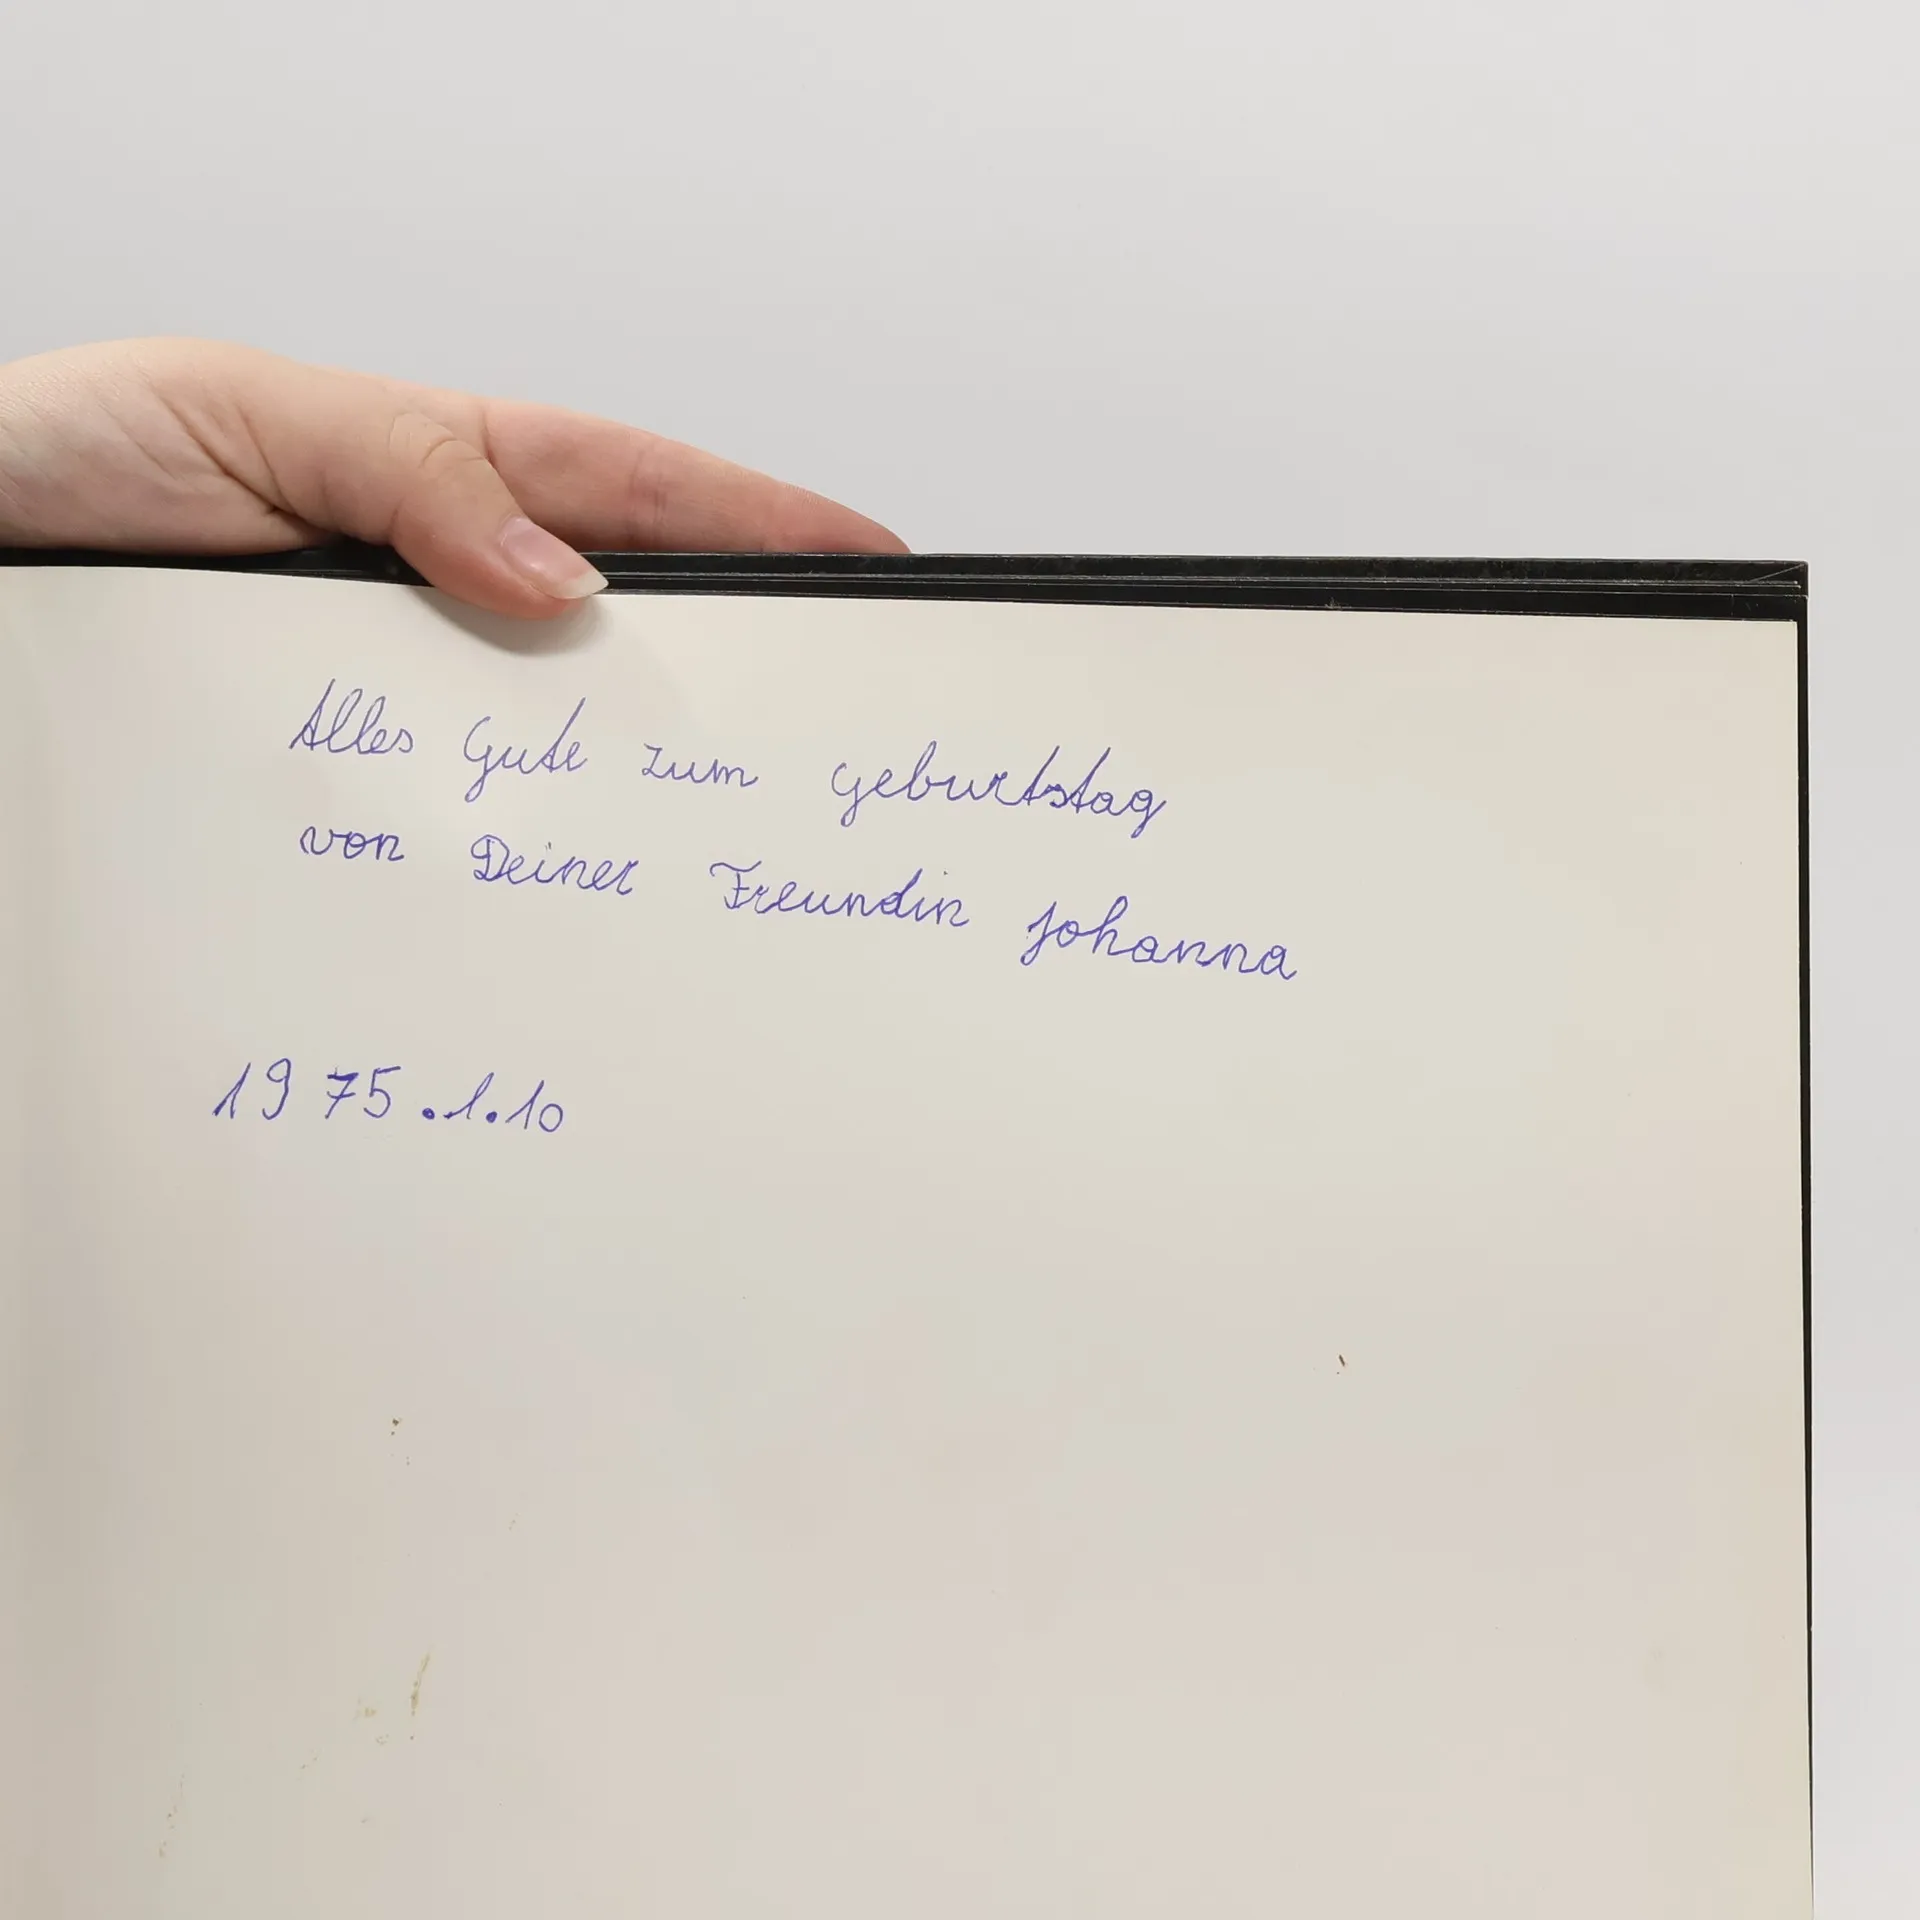 Alles Gute zum Geburtstag
von Deiner Freundin Johanna
1975.1.10